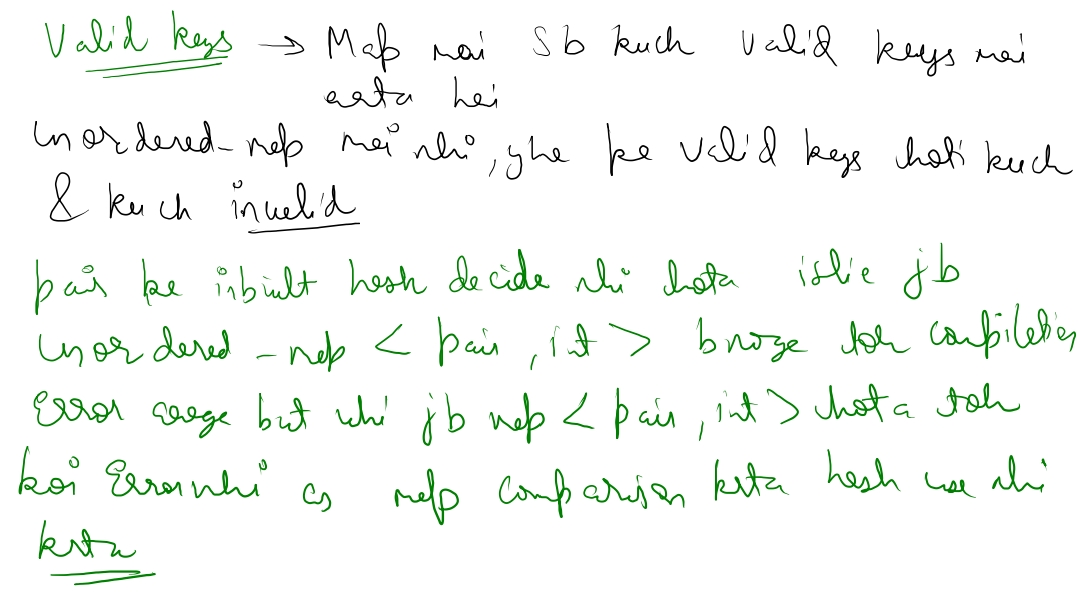 Valid keys → Map mai Sb kuch valid keys mai
aata hai
unordered_map mai nhi, yha pe valid keys hoti kuch
& kuch invalid
pair ke inbuilt hash decide nhi hota islie jb
unordered_map < pair, int > bnoge toh compilation
Error aaega but whi jb map < pair, int > hota toh
koi Error nhi as map comparison krta hash use nhi
krta